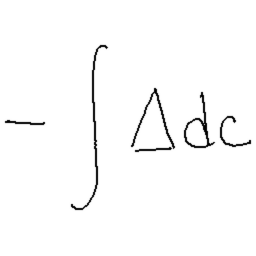 -∫Δdc